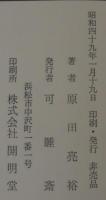 昭和四十九年一月十九日 印刷・発行 非売品
著者 原田亮裕
発行者 可睡斎
浜松市中沢町一番一号
印刷所 株式会社開明堂